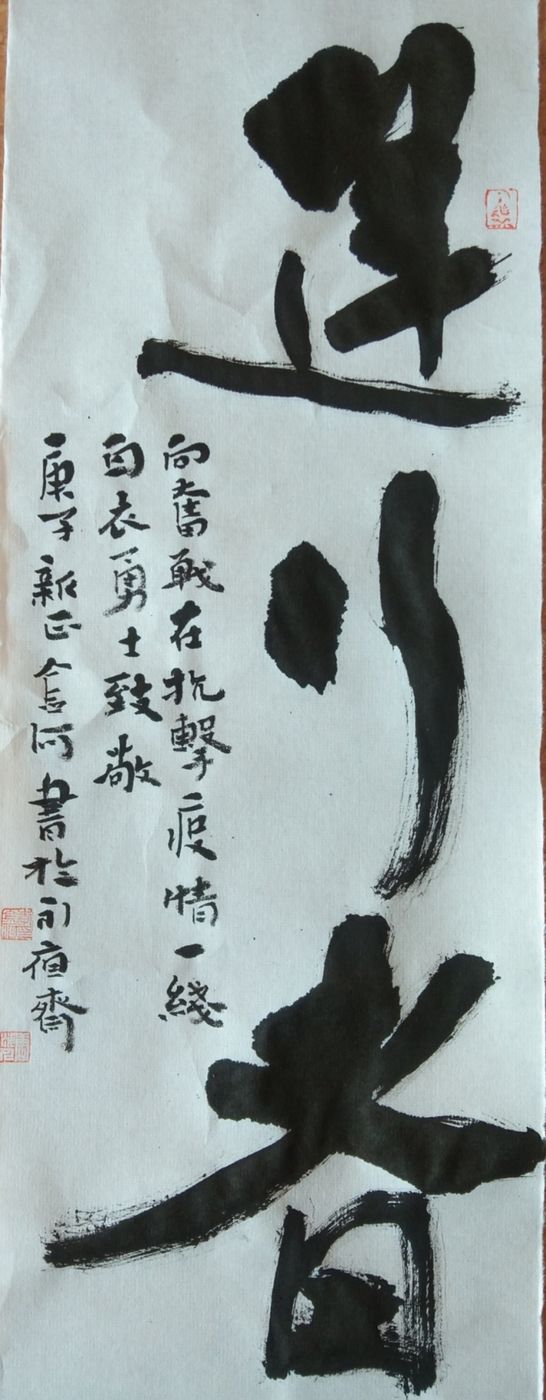 逆行者
向奮戰在抗擊疫情一綫
白衣勇士致敬
庚子新正 書於 齋